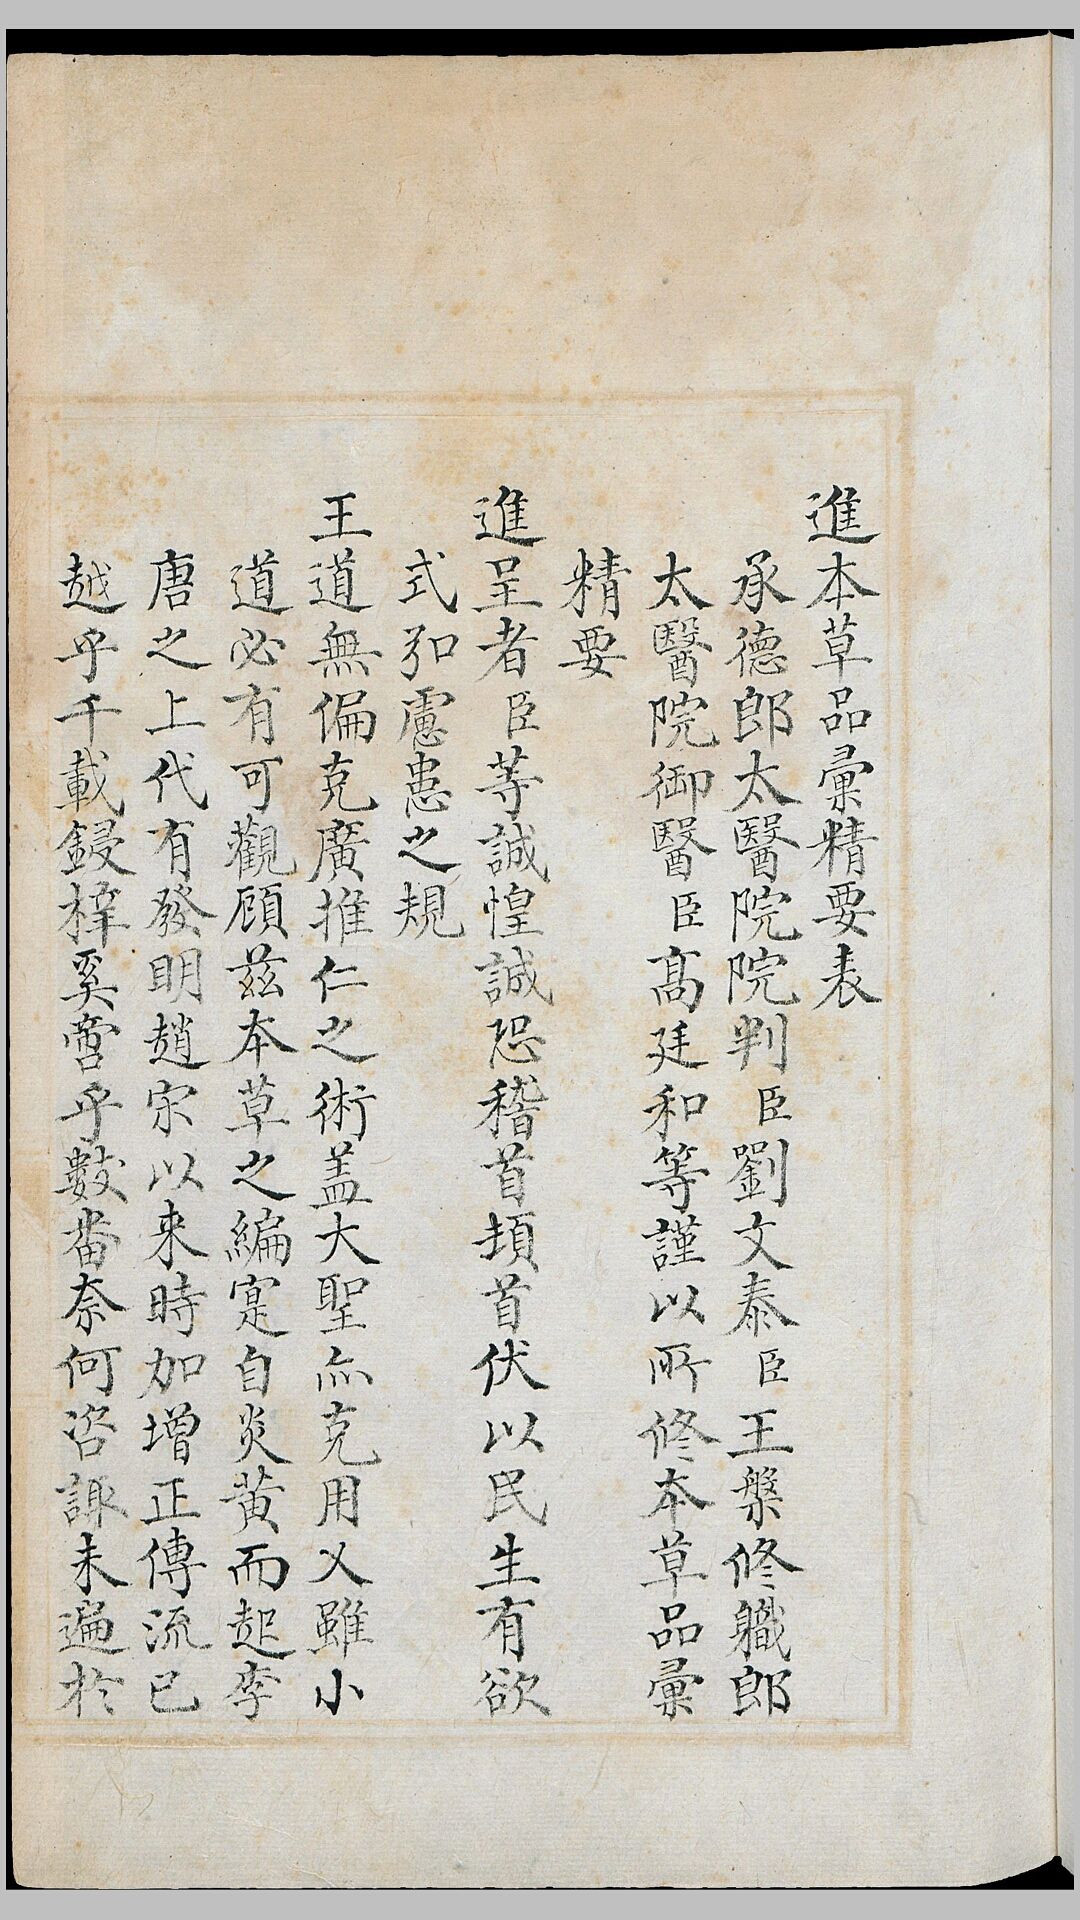 進本草品彙精要表
承德郎太醫院院判臣劉文泰臣王槃修職郎
太醫院御醫臣髙廷和等謹以所修本草品彙
精要
進呈者臣等誠惶誠恐稽首頓首伏以民生有欲
式弘慮患之規
王道無偏克廣推仁之術盖大聖亦克用乂雖小
道必有可觀顧兹本草之編寔自炎黄而起李
唐之上代有發明趙宋以来時加增正傳流已
越乎千載鋟梓奚啻乎數番奈何咨諏未遍於